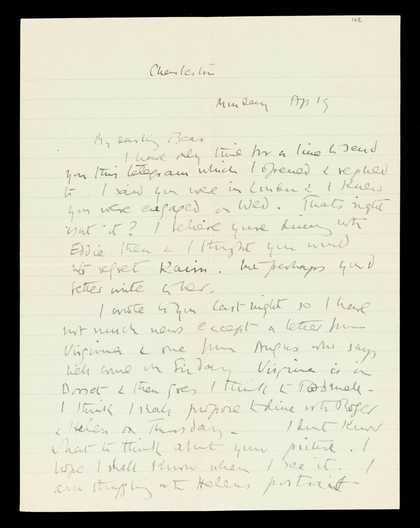 Charleston
Monday Ap 19
My darling Bear
I have only time for a line to send
you this telegram which I opened & replied
to. I said you were in London & I knew
you were engaged on Wed. That's right
isn't it? I believe you're dining with
Eddie then & I thought you would
not regret Karin. But perhaps you'd
better write to her.
I wrote to you last night so I have
not much news except a letter from
Virginia & one from Angus who says
he'll come on Friday. Virginia is in
Dorset & then goes I think to Rodmell.
I think I shall propose to dine with Roger
& Helen on Thursday. I don't know
what to think about your picture. I
hope I shall know when I see it. I
am struggling with Helen's portrait